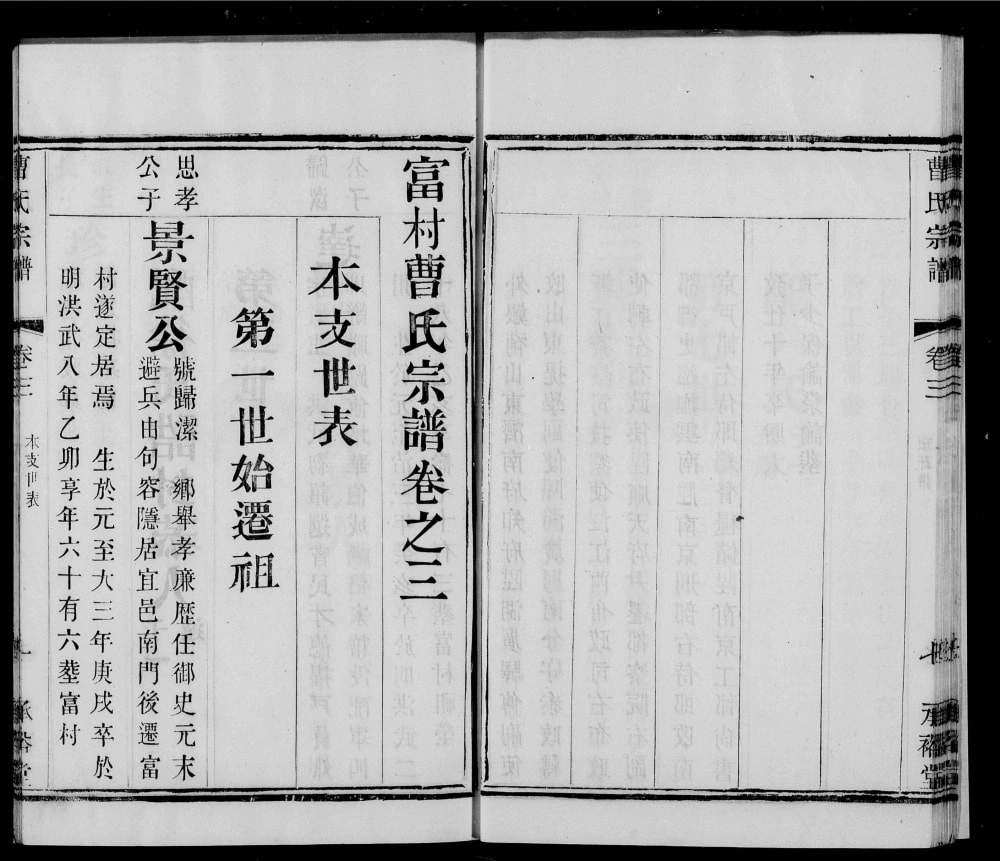 曹氏宗譜
卷三
承裕堂
富村曹氏宗譜卷之三
本支世表
第一世始遷祖
思孝
公子
景賢公
號歸潔 鄉舉孝廉歷任御史元末
避兵由句容隱居宜邑南門後遷富
村遂定居焉 生於元至大三年庚戌卒於
明洪武八年乙卯享年六十有六塟富村
曹氏宗譜
卷三
本支世表
一
承裕堂